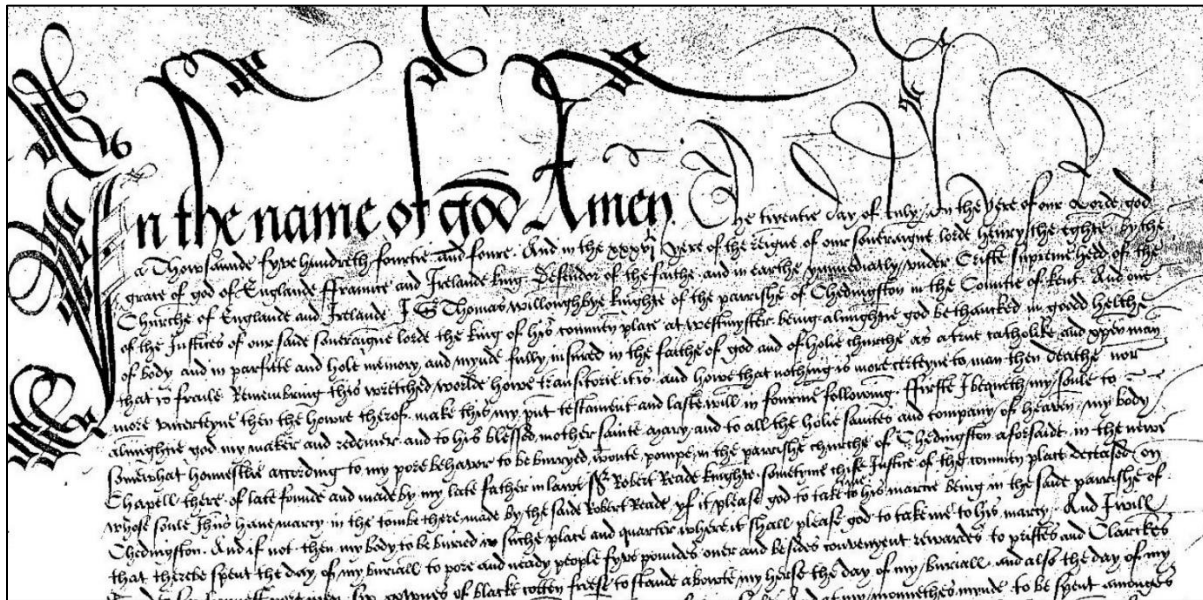 In the name of god Amen The twentie day of July / In the yere of our Lorde god
a Thowsannde fyve hundreth fourtie and foure. And in the xxxvj yere of the reigne of our soveraigne lorde henry the eghte by the
grace of god of Englande ffrannce and Irelande king Defendor of the faithe and in earthe ymmediatly under Criste supreme hedd of the
Churche of Englande and Irelande I Sr Thomas willoughbye knighte of the parrishe of Chedingston in the Countie of Kent. And one
of the Justices of our saide soveraigne lorde the king of his common place at westmynster. being almightie god be thancked in goodd helthe
of body and in parfitte and hole memory, and mynde fully insured in the faithe of god and of holie churche as a true catholike and xpen man
that is fraile Remembring this wretched worlde howe transitorie it is and howe that nothing is more certeyne to man then deathe nor
more uncerteyne then the howre therof. make this my pnt testament and laste will in fourme following. ffirste I bequeth my soule to
almightie god my maker and redemer and to his blessed mother sainte mary and to all the holie saintes and company of heaven / my body
somewhat honnestlie according to my pore behavor to be buryed, woute pompe, in the parrishe churche of Chedingston aforsaide. in the newe
Chapell there of late founde and made by my late father in lawe Sr Robert Reade knighte. sometyme chife Justice of the common place deceased, on
whose soule Jhus have marcy in the tombe there made by the saide Robert Reade, yf it please god to take me to his marcie being in the saide parrishe of
Chedingston. And if not then my body to be buried in suche place and quarter where it shall please god to take me to his marcy. And I will
that therebe spent the day of my buriall to pore and neady people fyve poundes over and besides convenyent rewardes to pristes and Clarckes
pore men six gownes of blacke cotton freese to stande abowte my herse the day of my buriall and also the day of my
And at my monnethes mynde to be spent amonges